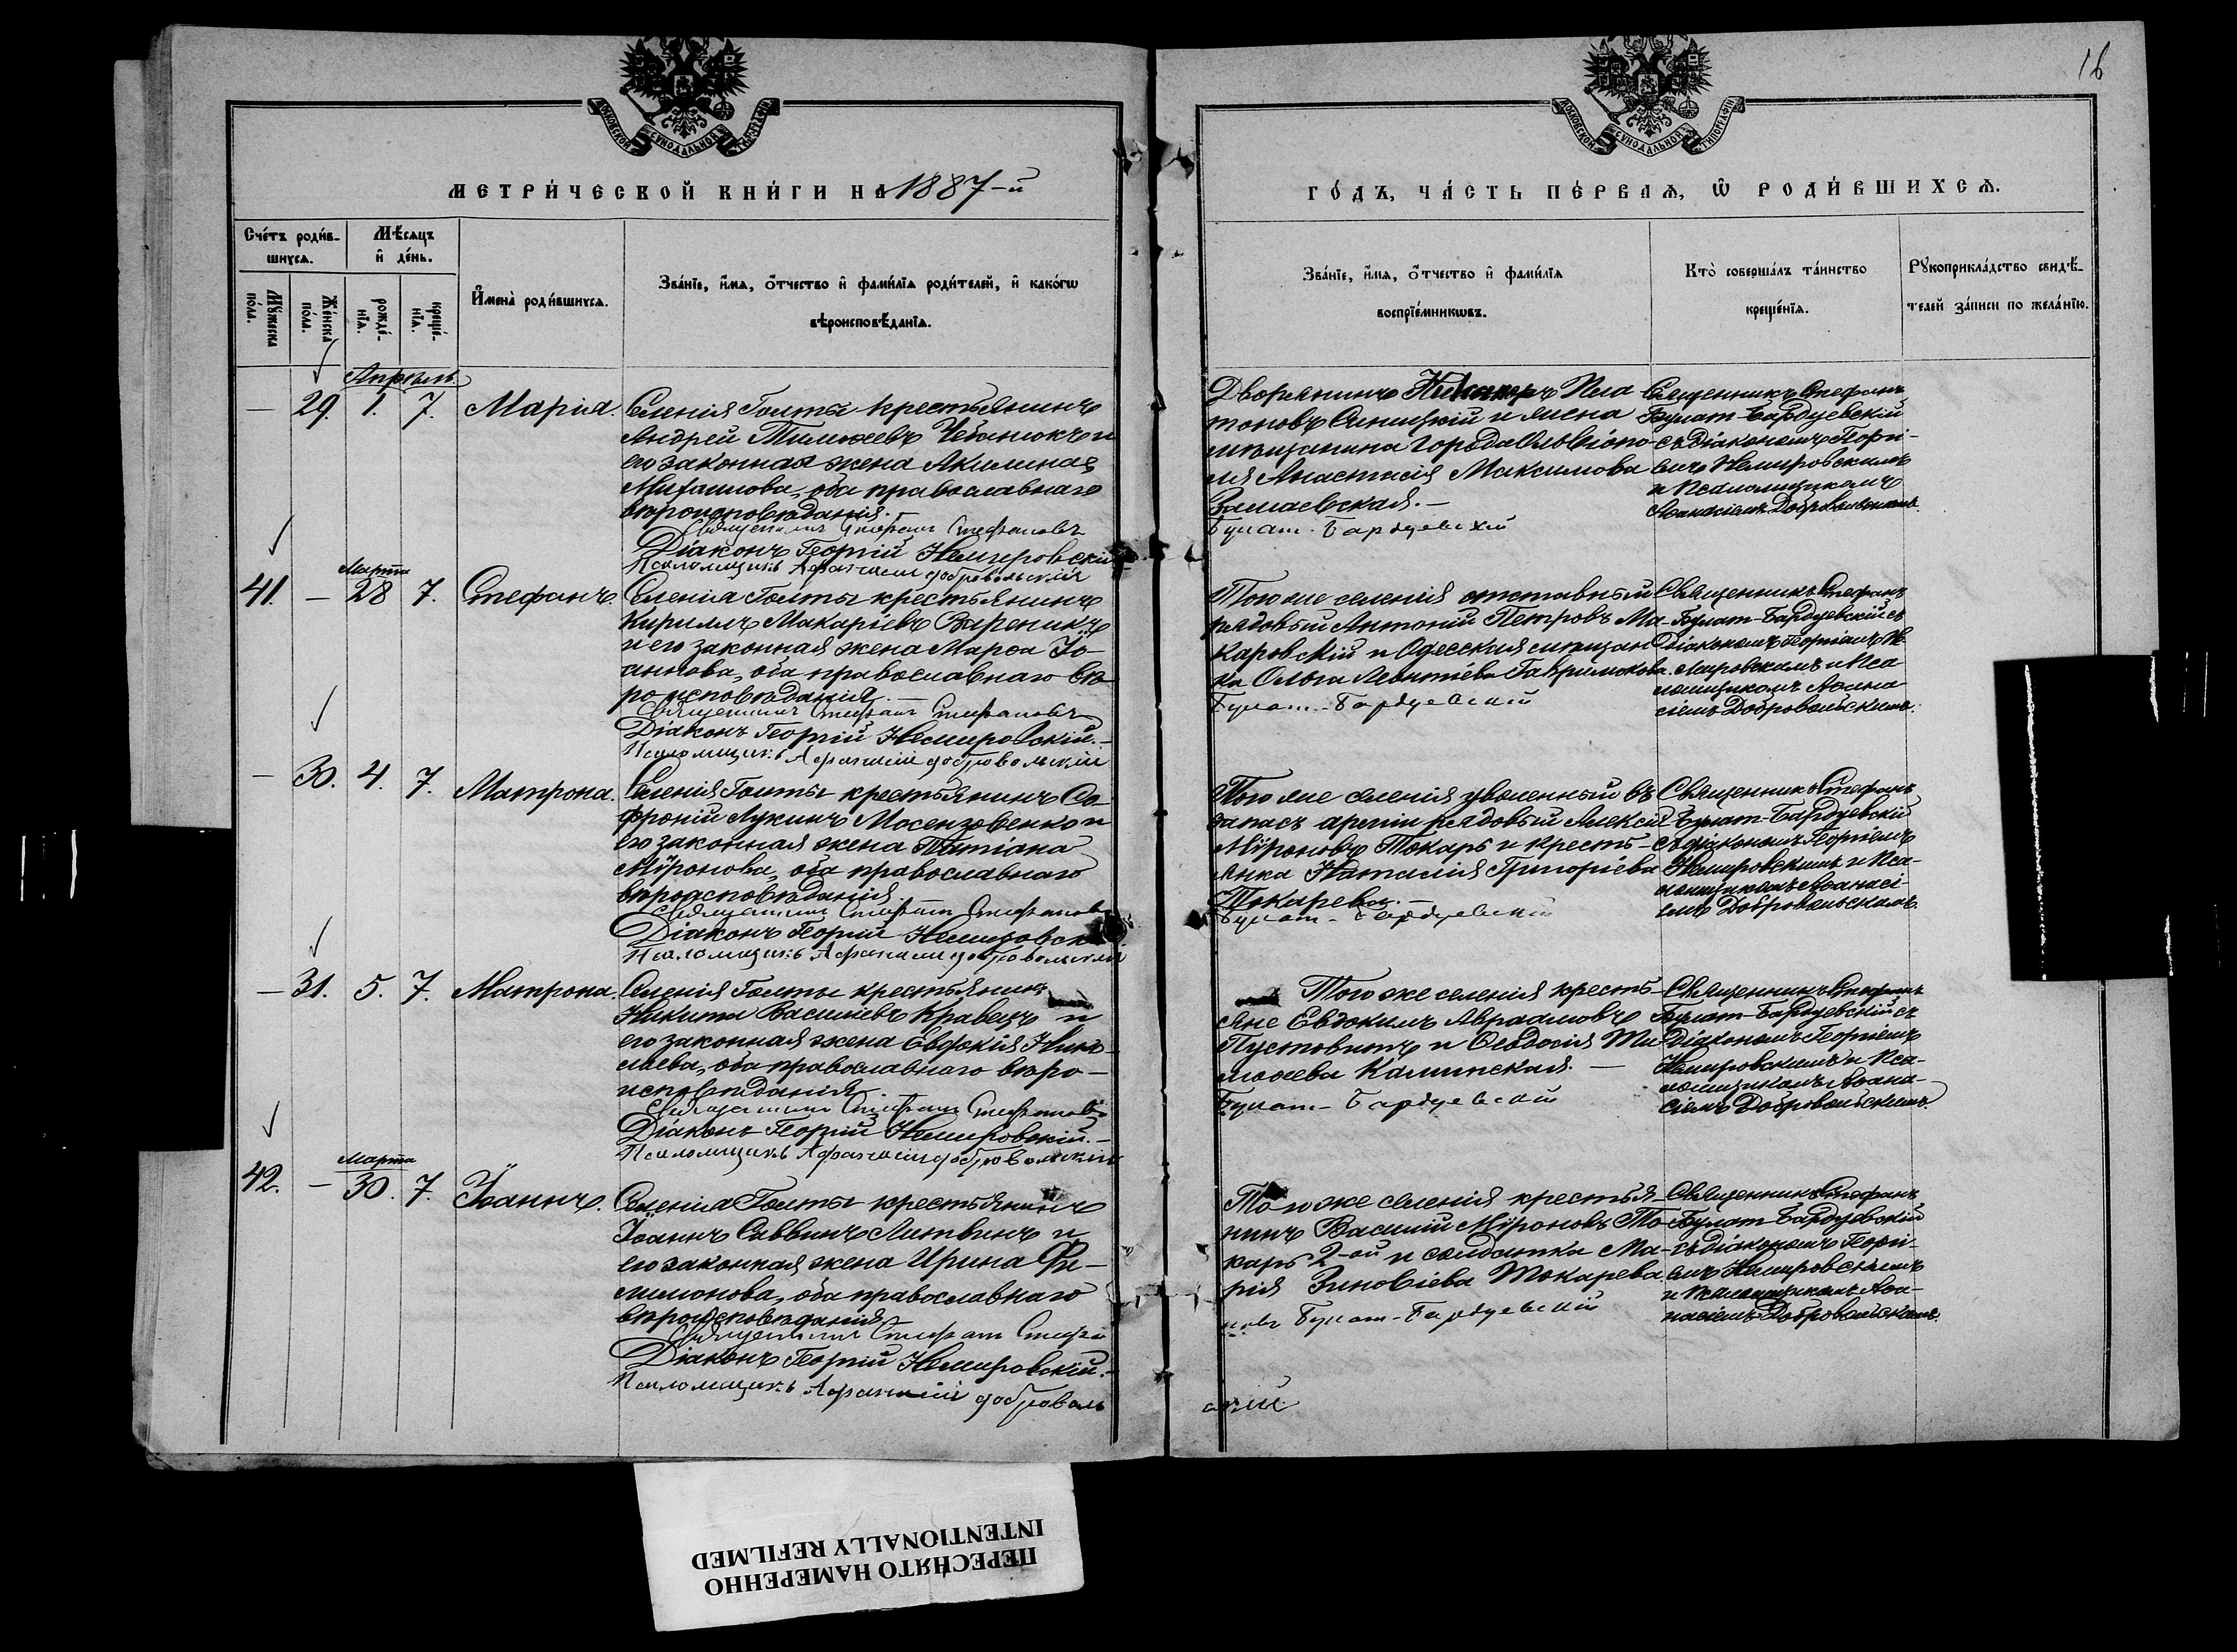 16
МОСКОВСКОЙ СѴНОДАЛЬНОЙ ТИПОГРАФІИ
МОСКОВСКОЙ СѴНОДАЛЬНОЙ ТИПОГРАФІИ
МЕТРИ́ЧЕСКОЙ КНИ́ГИ НА 1887-й
ГО́ДЪ, ЧА́СТЬ ПЕ́РВАѦ, Ѽ РОДИ́ВШИХСѦ.
Сче́тъ роди́в-
шихсѧ.
Мѣ́сяцъ
и҆ де́нь.
Мꙋ́жеска
по́ла.
Же́нска
по́ла.
рожде́-
нїѧ.
креще́-
нїѧ.
И҆мена̀ роди́вшихсѧ.
Зва́нїе, и҆́мѧ, ѻ҆́тчество и҆ фами́лїѧ роди́телей, и҆ како́гѡ
вѣроисповѣ́данїѧ.
Зва́нїе, и҆́мѧ, ѻ҆́тчество и҆ фами́лїѧ
воспрїе́мникѡвъ.
Кто̀ соверша́лъ та́инство
креще́нїѧ.
Рꙋкоприкла́дство свидѣ́-
телей за́писи по жела́нїю.
Апрѣль
— 29. 1. 7. Марія.
Селенія Голты крестьянинъ
Андрей Тимоѳеевъ Чебанюкъ и
его законная жена Акилина
Михаилова, оба православнаго
вѣроисповѣданія.
Священникъ Стефанъ Стефановъ
Діаконъ Георгій Немировскій
Псаломщикъ Афанасій Добровольскій
Дворянинъ Пла
тоновъ Синицкій и жена
мѣщанина города Ольвіопо-
ля Анастасія Максимова
Булат-Бардуевскій
Священникъ Стефанъ
Булат-Бардуевскій
съ діакономъ Георгі-
емъ Немировскимъ
и Псаломщикомъ
Аѳанасіемъ Добровольскимъ.
Марта
41. — 28 7. Стефанъ.
Селенія Голты крестьянинъ
Кириллъ Макаріевъ Вареникъ
и его законная жена Марѳа Іо-
аннова, оба православнаго вѣ-
роисповѣданія.—
Священникъ Стефанъ Стефановъ
Діаконъ Георгій Немировскій.—
Псаломщикъ Афанасій Добровольскій
Того же селенія отставный
рядовый Антоній Петровъ Ма-
каровскій и Одесская мѣщан-
ка Ольга Леонтіева Гаврилюкова.
Булат-Бардуевскій
Священникъ Стефанъ
Булат-Бардуевскій съ
діакономъ Георгіемъ Не-
мировскимъ и Пса-
ломщикомъ Аѳана-
сіемъ Добровольскимъ.
— 30. 4. 7. Матрона.
Селенія Голты крестьянинъ Со-
фроній Лукинъ Мосензовенко и
его законная жена Татіана
Мѵронова, оба православнаго
вѣроисповѣданія
Священникъ Стефанъ Стефановъ
Діаконъ Георгій Немировскій
Псаломщикъ Афанасій Добровольскій
Того же селенія уволенный въ
запасъ арміи рядовый Алексій
Мѵроновъ Токарь и кресть-
янка Наталія Григоріева
Токарева.—
Булат-Бардуевскій
Священникъ Стефанъ
Булат-Бардуевскій
съ діакономъ Георгіемъ
Немировскимъ и Пса-
ломщикомъ Аѳанасі-
емъ Добровольскимъ.
— 31. 5. 7. Матрона.
Селенія Голты крестьянинъ
Никита Василіевъ Кравецъ и
его законная жена Евдокія
оба православнаго вѣро-
исповѣданія.
Священникъ Стефанъ Стефановъ
Діаконъ Георгій Немировскій.—
Псаломщикъ Афанасій Добровольскій
Того же селенія кресть-
яне Евдокимъ Авраамовъ
Пустовитъ и Ѳеодосія Ти-
моѳеева Калинская.—
Булат-Бардуевскій
Священникъ Стефанъ
Булат-Бардуевскій съ
діакономъ Георгіемъ
Немировскимъ и Пса-
ломщикомъ Аѳана-
сіемъ Добровольскимъ.
Марта
42. — 30. 7. Іоаннъ.
Селенія Голты крестьянинъ
Іоаннъ Саввинъ Литвинъ и
его законная жена Ирина Фи-
лимонова, оба православнаго
вѣроисповѣданія
Священникъ Стефанъ Стефа
Діаконъ Георгій Немировскій.—
Псаломщикъ Афанасій Доброволь
Того же селенія крестья-
нинъ Василій Мѵроновъ То-
карь 2-ой и солдатка Ма-
рія Зиновіева Токарева.
новъ Булат-Бардуевскій
скій
Священникъ Стефанъ
Булат-Бардуевскій
съ діакономъ Георгі-
емъ Немировскимъ
и Псаломщикомъ Аѳа-
насіемъ Добровольскимъ.
ПЕРЕСНЯТО НАМЕРЕННО
INTENTIONALLY REFILMED